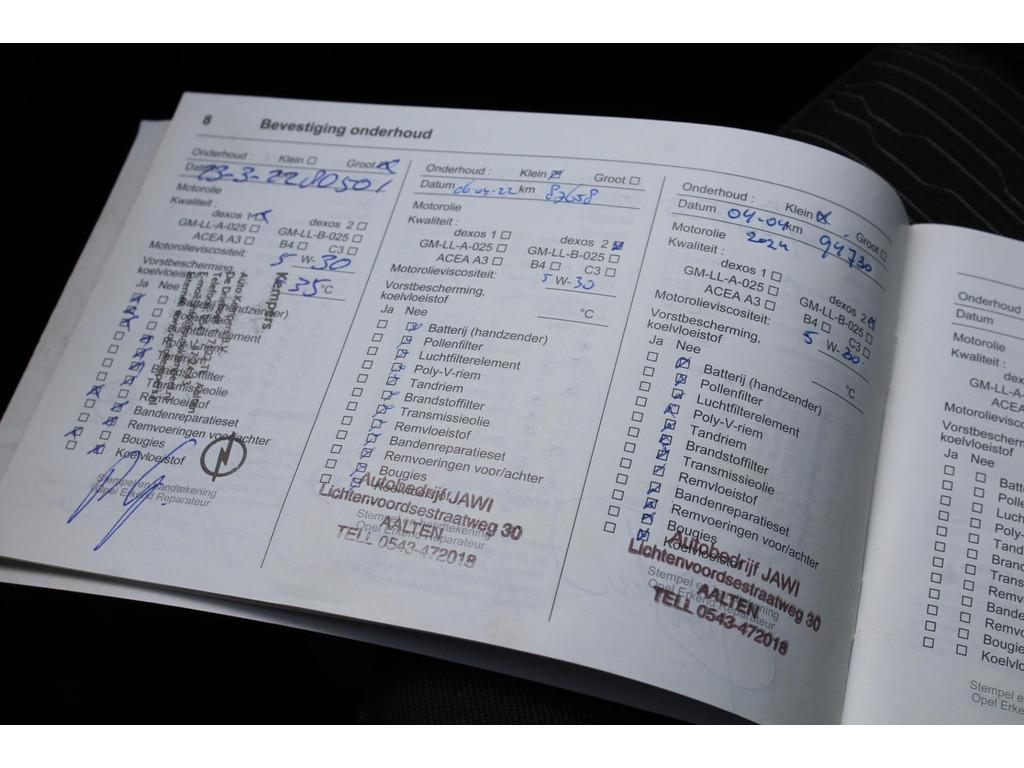 8 Bevestiging onderhoud
Onderhoud : Klein Groot
Datum 23-3-22 80501
Motorolie
Kwaliteit :
dexos 1 dexos 2
GM-LL-A-025 GM-LL-B-025
ACEA A3 B4 C3
Motorolieviscositeit: 5 W-30
Vorstbescherming,
koelvloeistof 35 °C
Ja Nee
Batterij (handzender)
Tandriem
Brandstoffilter
Transmissieolie
Remvloeistof
Bandenreparatieset
Remvoeringen voor/achter
Bougies
Koelvloeistof
Kempers
Stempel en handtekening
Opel Erkend Reparateur
Onderhoud : Klein Groot
Datum 06-04-22 km 87658
Motorolie
Kwaliteit :
dexos 1 dexos 2
GM-LL-A-025 GM-LL-B-025
ACEA A3 B4 C3
Motorolieviscositeit: 5 W-30
Vorstbescherming,
koelvloeistof °C
Ja Nee
Batterij (handzender)
Pollenfilter
Luchtfilterelement
Poly-V-riem
Tandriem
Brandstoffilter
Transmissieolie
Remvloeistof
Bandenreparatieset
Remvoeringen voor/achter
Bougies
Koelvloeistof
Autobedrijf JAWI
Lichtenvoordsestraatweg 30
AALTEN
TELL 0543-472018
Stempel en handtekening
Opel Erkend Reparateur
Onderhoud : Klein Groot
Datum 04-04 km 94730
2024
Motorolie
Kwaliteit :
dexos 1 dexos 2
GM-LL-A-025 GM-LL-B-025
ACEA A3 B4 C3
Motorolieviscositeit: 5 W-30
Vorstbescherming,
koelvloeistof °C
Ja Nee
Batterij (handzender)
Pollenfilter
Luchtfilterelement
Poly-V-riem
Tandriem
Brandstoffilter
Transmissieolie
Remvloeistof
Bandenreparatieset
Remvoeringen voor/achter
Bougies
Koelvloeistof
Autobedrijf JAWI
Lichtenvoordsestraatweg 30
AALTEN
TELL 0543-472018
Stempel en handtekening
Opel Erkend Reparateur
Onderhoud
Datum
Motorolie
Kwaliteit :
dex
GM-LL-A
ACEA
Motorolievisc
Vorstbescherm
koelvloeistof
Ja Nee
Batt
Pollen
Lucht
Poly-
Tand
Brand
Trans
Remv
Bande
Remvo
Bougie
Koelvlo
Stempel e
Opel Erke